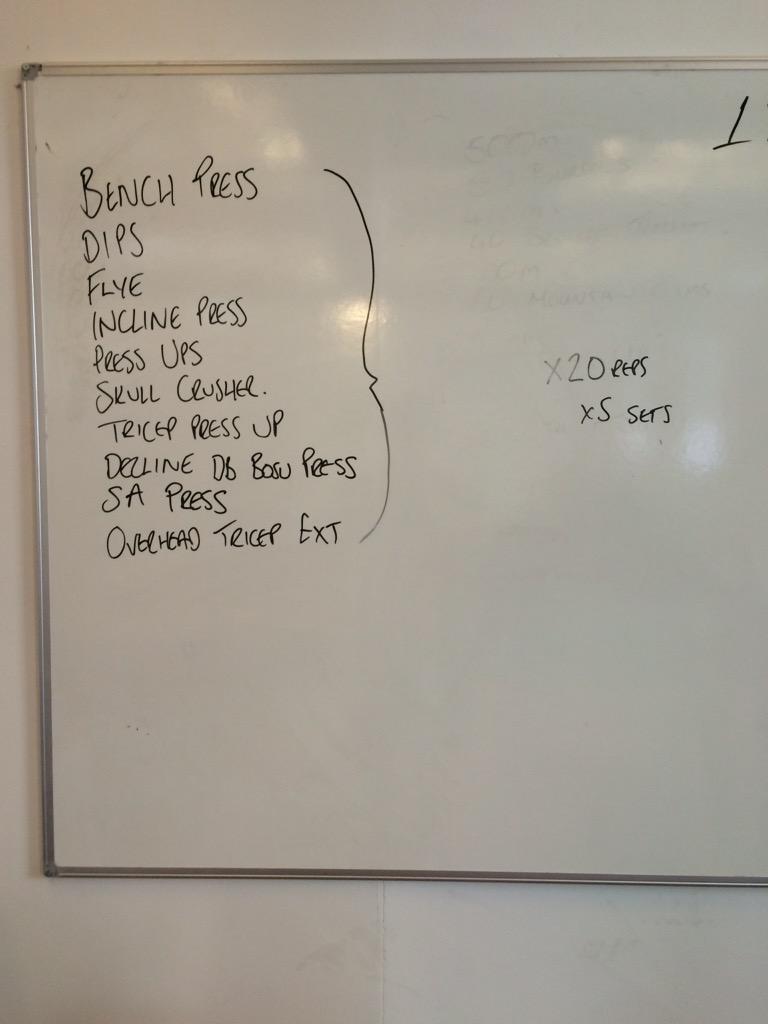 BENCH PRESS
DIPS
FLYE
INCLINE PRESS
PRESS UPS
SKULL CRUSHER.
TRICEP PRESS UP
DECLINE DB BOSU PRESS
SA PRESS
OVERHEAD TRICEP EXT
X20 REPS
X5 SETS
500m